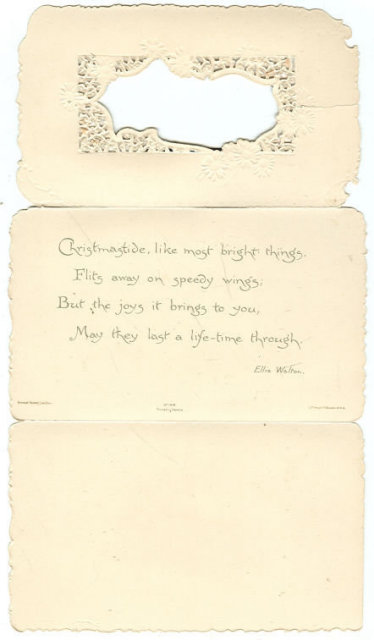 Christmastide, like most bright things,
Flits away on speedy wings;
But the joys it brings to you,
May they last a life-time through.
Ellis Walton.